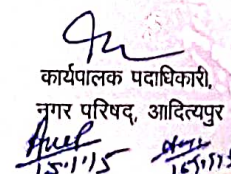 कार्यपालक पदाधिकारी,
नगर परिषद्, आदित्यपुर
15.1.15